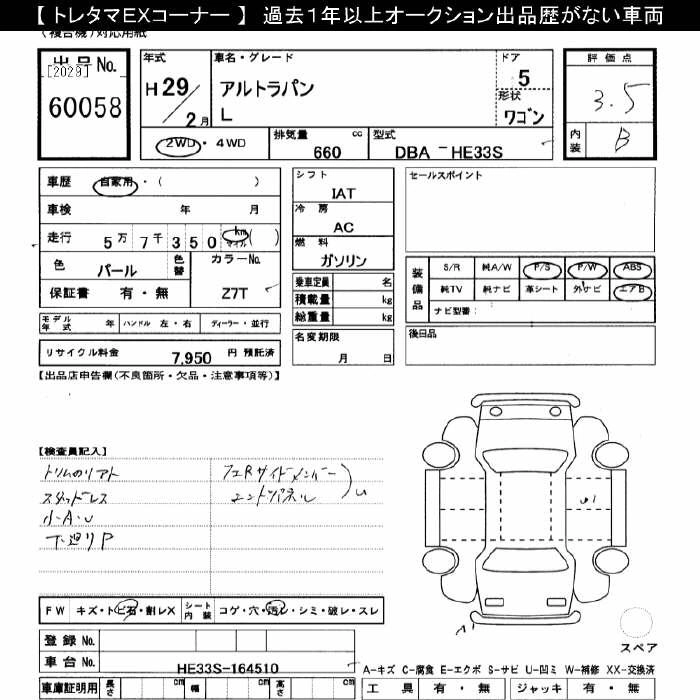 【 トレタマEXコーナー 】 過去１年以上オークション出品歴がない車両
(複合機)対応用紙
出品No.
[2029]
60058
年式
H 29 / 2 月
車名・グレード
アルトラパン
L
ドア
5
形状
ワゴン
評価点
3.5
内装
B
2WD・4WD
排気量 cc
660
型式
DBA － HE33S
車歴 自家用・( )
車検 年 月
走行 5万 7千 350 km マイル ( )
色 パール 色替
カラーNo.
Z7T
保証書 有・無
モデル年式 年 ハンドル 左・右 ディーラー・並行
リサイクル料金 7,950 円 預託済
シフト
IAT
冷房
AC
燃料
ガソリン
乗車定員 名
積載量 kg
総重量 kg
名変期限
月 日
セールスポイント
装備品
S/R 純A/W P/S P/W ABS
純TV 純ナビ 革シート 外ナビ エアB
ナビ型番:
後日品
【出品店申告欄(不良箇所・欠品・注意事項等)】
【検査員記入】
トリムのリアト
スタッドレス
小A・U
下廻りP
フエRサイドメンバー
エンドパネル
U
U1
A1
FW キズ・トビ石・割レX
シート内装 コゲ・穴・汚レ・シミ・破レ・スレ
登録 No.
車台 No.
HE33S-164510
車庫証明用 長さ cm 幅 cm 高さ cm
スペア
A-キズ C-腐食 E-エクボ S-サビ U-凹ミ W-補修 XX-交換済
工具 有・無 ジャッキ 有・無